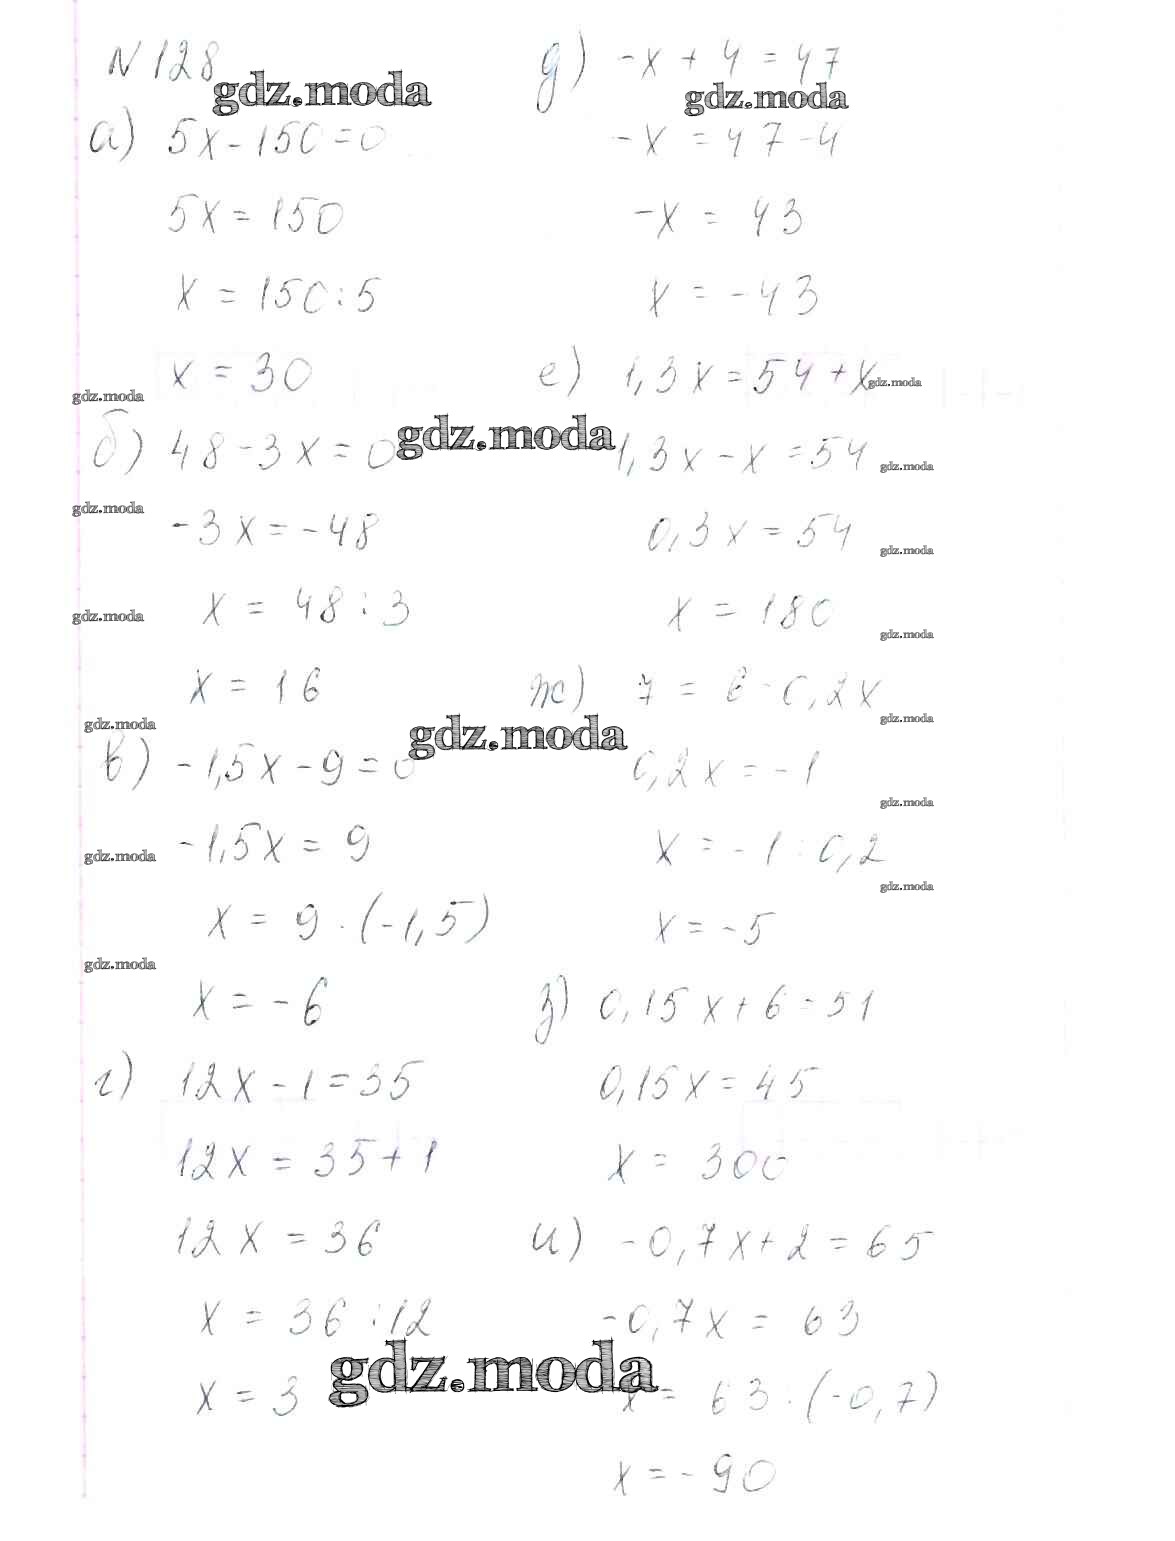 N 128
gdz.moda
а) 5x - 150 = 0
5x = 150
x = 150 : 5
x = 30
gdz.moda
б) 48 - 3x = 0
gdz.moda
gdz.moda
-3x = -48
gdz.moda
x = 48 : 3
x = 16
gdz.moda
gdz.moda
в) -1,5x - 9 = 0
gdz.moda
-1,5x = 9
x = 9 · (-1,5)
gdz.moda
x = -6
г) 12x - 1 = 35
12x = 35 + 1
12x = 36
x = 36 : 12
gdz.moda
x = 3
д) -x + 4 = 47
gdz.moda
-x = 47 - 4
-x = 43
x = -43
е) 1,3x = 54 + x
gdz.moda
1,3x - x = 54
gdz.moda
0,3x = 54
gdz.moda
x = 180
gdz.moda
ж) 7 = 6 - 0,2x
gdz.moda
0,2x = -1
gdz.moda
x = -1 : 0,2
gdz.moda
x = -5
з) 0,15x + 6 = 51
0,15x = 45
x = 300
и) -0,7x + 2 = 65
-0,7x = 63
x = 63 · (-0,7)
x = -90